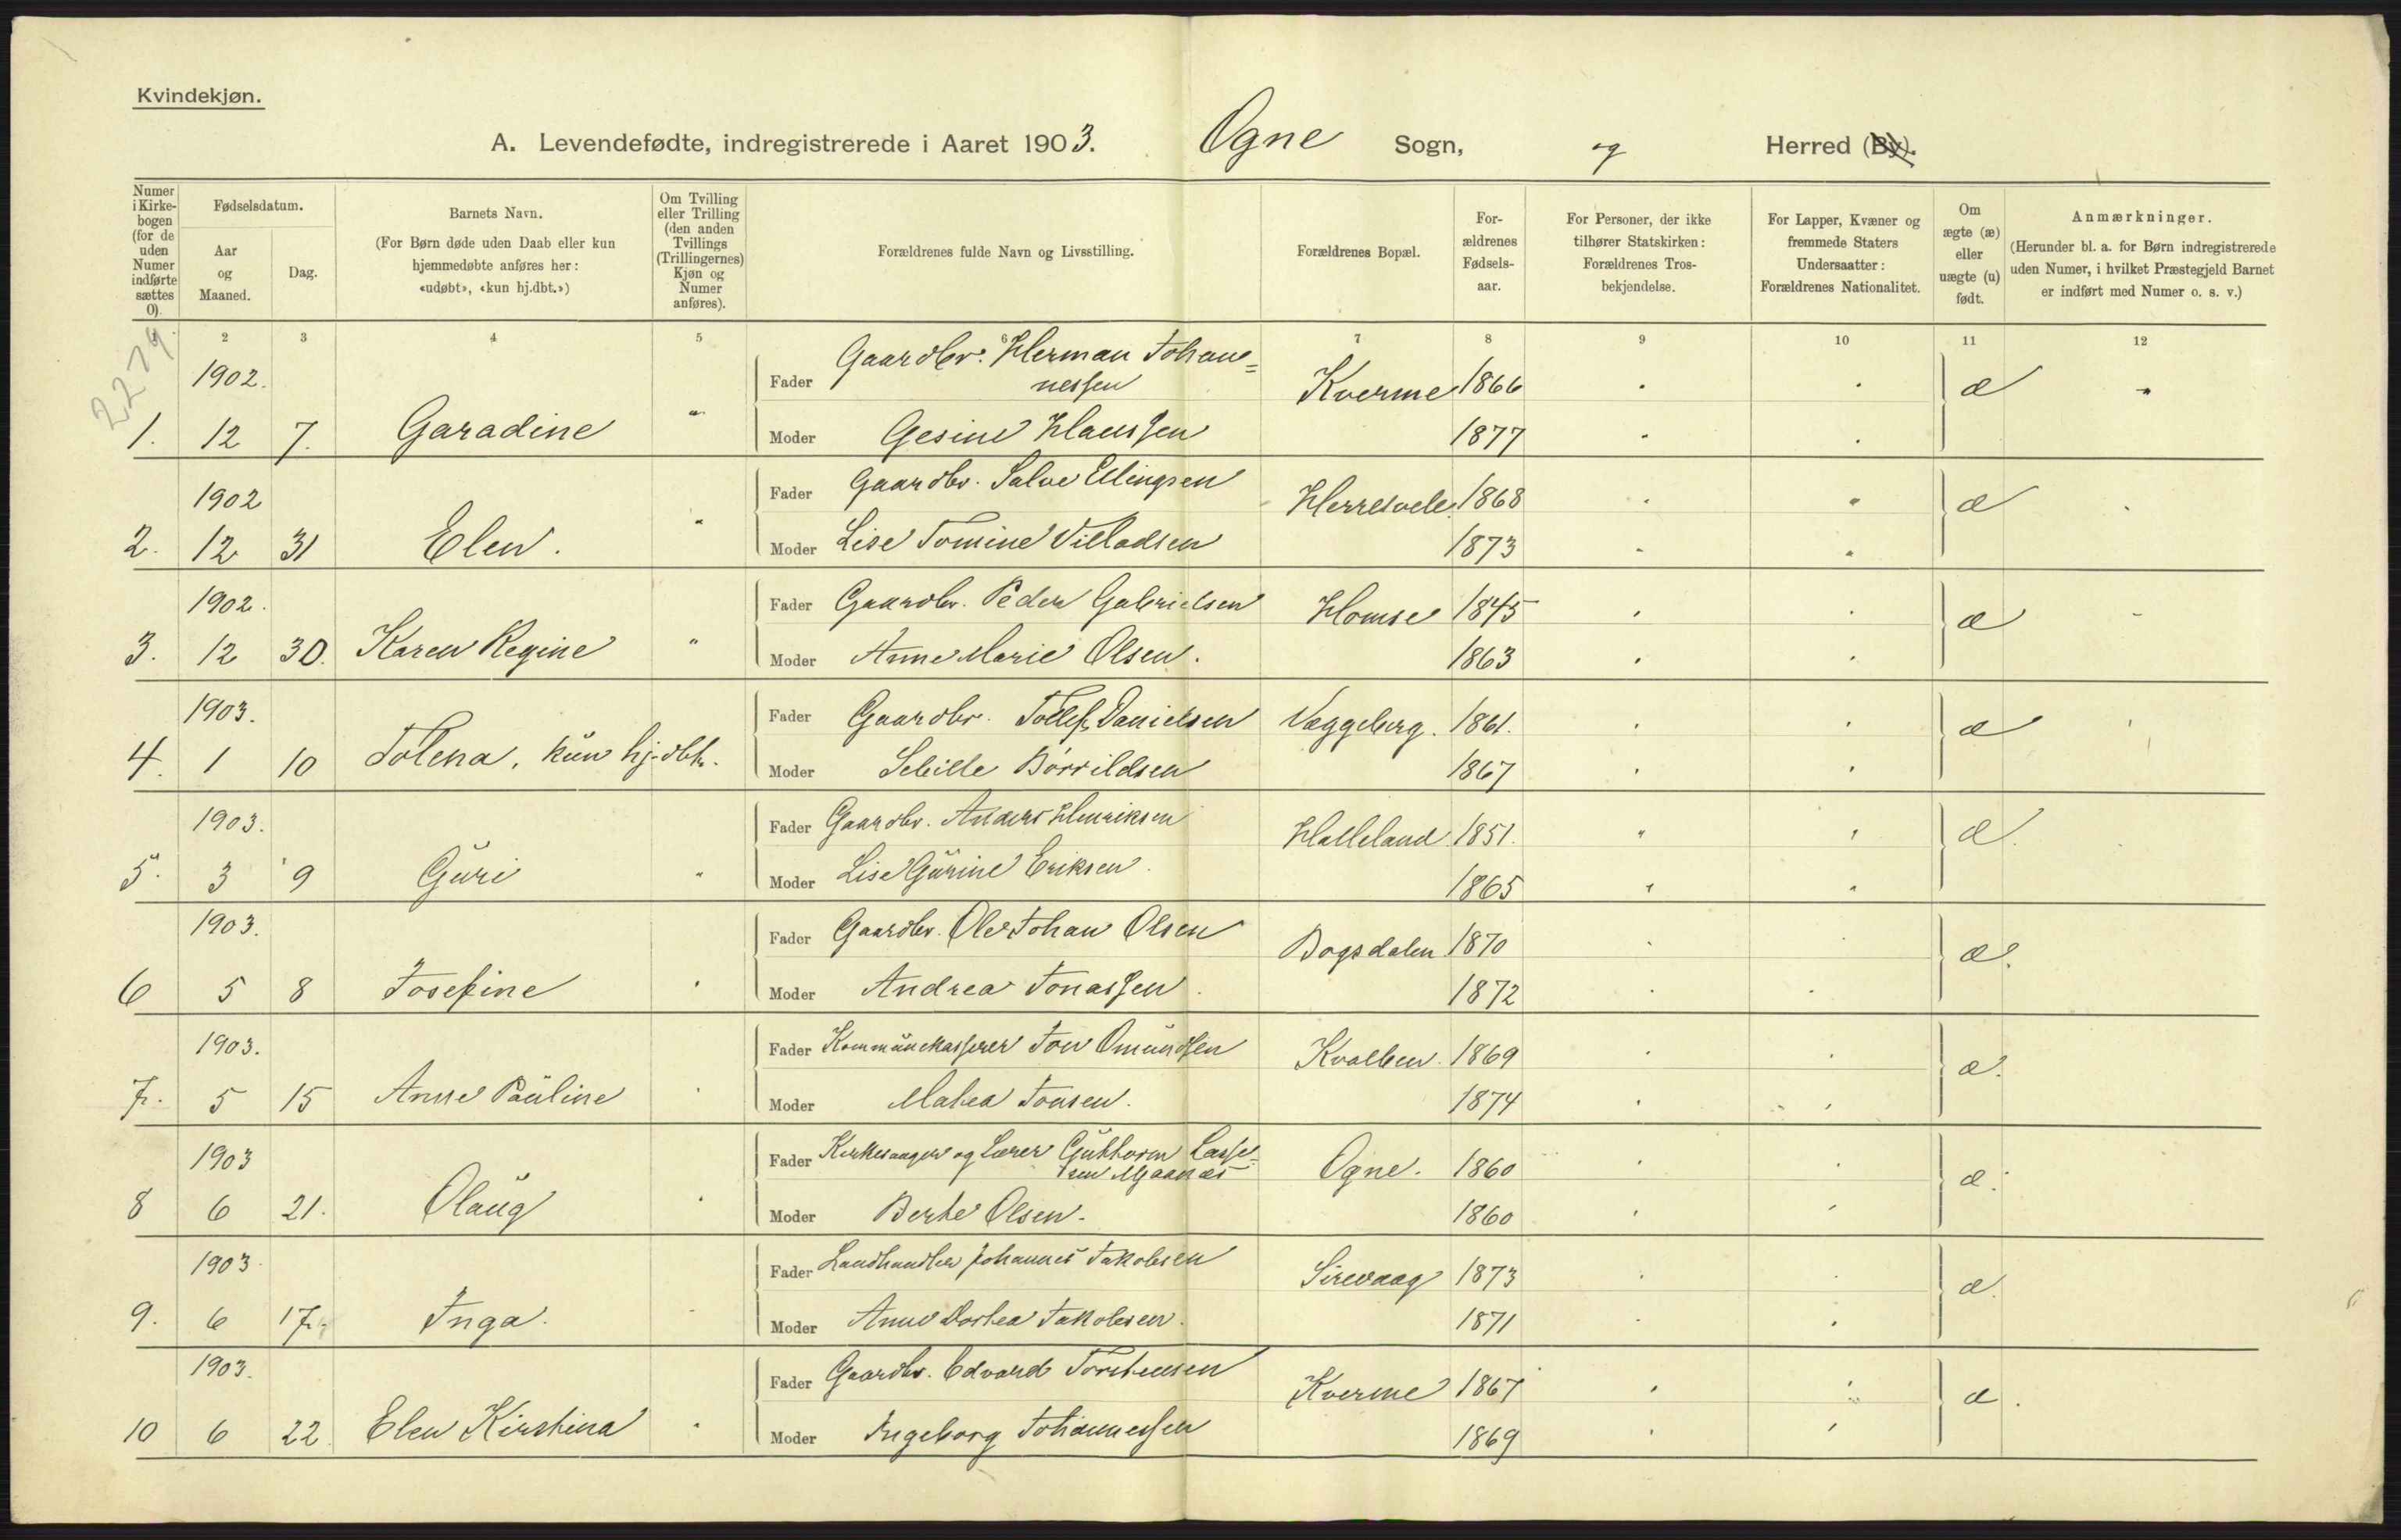 Kvindekjøn.
A. Levendefødte, indregistrerede i Aaret 1903. Ogne Sogn, og Herred (By).
Numer i Kirke- bogen (for de uden Numer indførte sættes 0).
Fødselsdatum.
Aar og Maaned.
Dag.
Barnets Navn.
(For Børn døde uden Daab eller kun hjemmedøbte anføres her: «udøbt», «kun hj.dbt.»)
Om Tvilling eller Trilling (den anden Tvillings (Trillingernes) Kjøn og Numer anføres).
Forældrenes fulde Navn og Livsstilling.
Forældrenes Bopæl.
For- ældrenes Fødsels- aar.
For Personer, der ikke tilhører Statskirken: Forældrenes Tros- bekjendelse.
For Lapper, Kvæner og fremmede Staters Undersaatter: Forældrenes Nationalitet.
Om ægte (æ) eller uægte (u) født.
Anmærkninger.
(Herunder bl. a. for Børn indregistrerede uden Numer, i hvilket Præstegjeld Barnet er indført med Numer o. s. v.)
2 3 4 5 6 7 8 9 10 11 12
2279
1902. Fader Gaardbr. Herman Johan= nessen Kverme 1866 æ "
1. 12 7. Garadine " Moder Gesine Klaussen 1877
1902 Fader Gaardbr. Salve Ellingsen Herresvele 1868 æ
2. 12 31 Elen. " Moder Lise Tomine Villadsen 1873
1902. Fader Gaardbr. Peder Gabrielsen Homse 1845 æ
3. 12 30. Karen Regine " Moder Anne Marie Olsen. 1863
1903. Fader Gaardbr. Tollef Danielsen Væggeberg. 1861. æ
4. 1 10 Tolena, kun hj. dbt. Moder Sebille Børrildsen 1867
1903. Fader Gaardbr. Anders Henriksen Halleland. 1851. æ.
5. 3 9 Guri " Moder Lise Gurine Eriksen. 1865
1903. Fader Gaardbr. Ole Johan Olsen Bogsdalen 1870 æ.
6 5 8 Josefine Moder Andrea Jonassen. 1872
1903. Fader Kommunekasserer Jon Omundsen Kvalben. 1869 æ.
7. 5 15 Anne Pauline Moder Malea Jonsen. 1874
1903 Fader Kirkesanger og Lærer Gutttorm Lasse= sen Maanæs Ogne. 1860 æ.
8 6 21. Olaug Moder Berte Olsen. 1860
1903 Fader Landhandler Johannes Jakobsen Sirevaag 1873 æ.
9. 6 17. Inga. Moder Anne Dortea Jakobsen. 1871
1903. Fader Gaardbr. Edvard Torstensen Kverme 1867 æ.
10 6 22 Elen Kirstina Moder Ingeborg Johannessen 1869